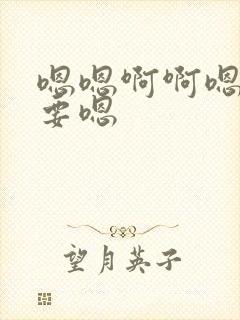 嗯嗯啊啊嗯
要嗯
望月英子